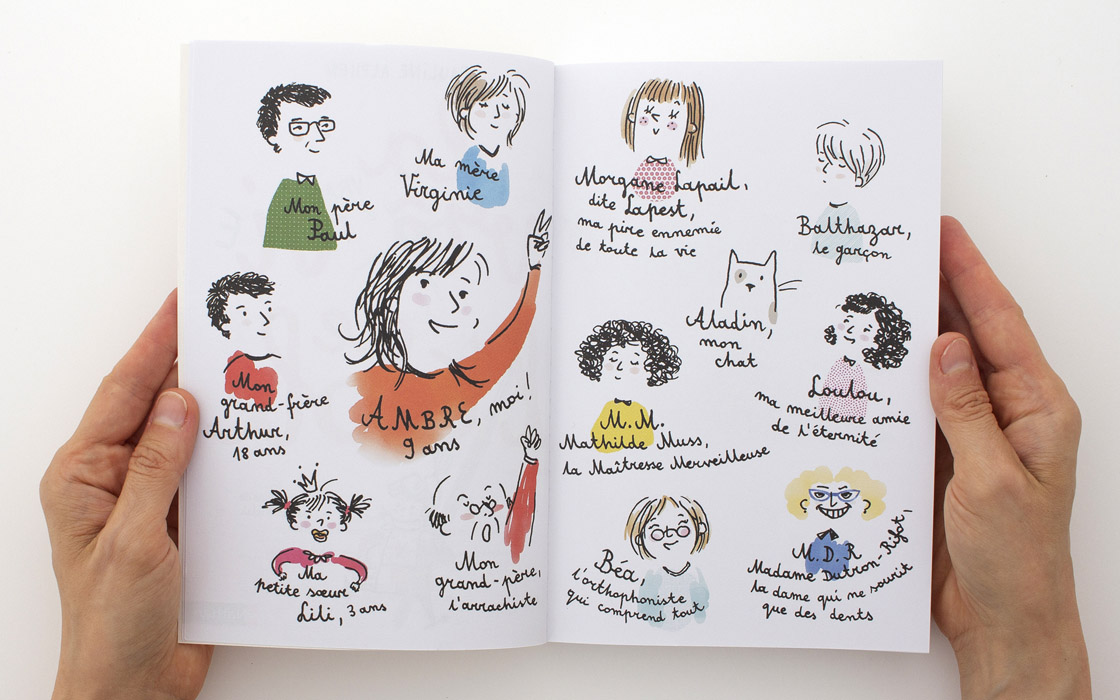 Mon père
Paul
Ma mère
Virginie
Mon
grand-frère
Arthur,
18 ans
AMBRE, moi !
9 ans
Ma
petite sœur
Lili, 3 ans
Mon
grand-père,
l'arrachiste
Morgane Lapail,
dite Lapest,
ma pire ennemie
de toute la vie
Balthazar,
le garçon
Aladin,
mon
chat
M.M.
Mathilde Muss,
la Maîtresse Merveilleuse
Loulou,
ma meilleure amie
de l'éternité
Béa,
l'orthophoniste
qui comprend tout
M.D.R
Madame Dutron-Rifot,
la dame qui ne sourit
que des dents